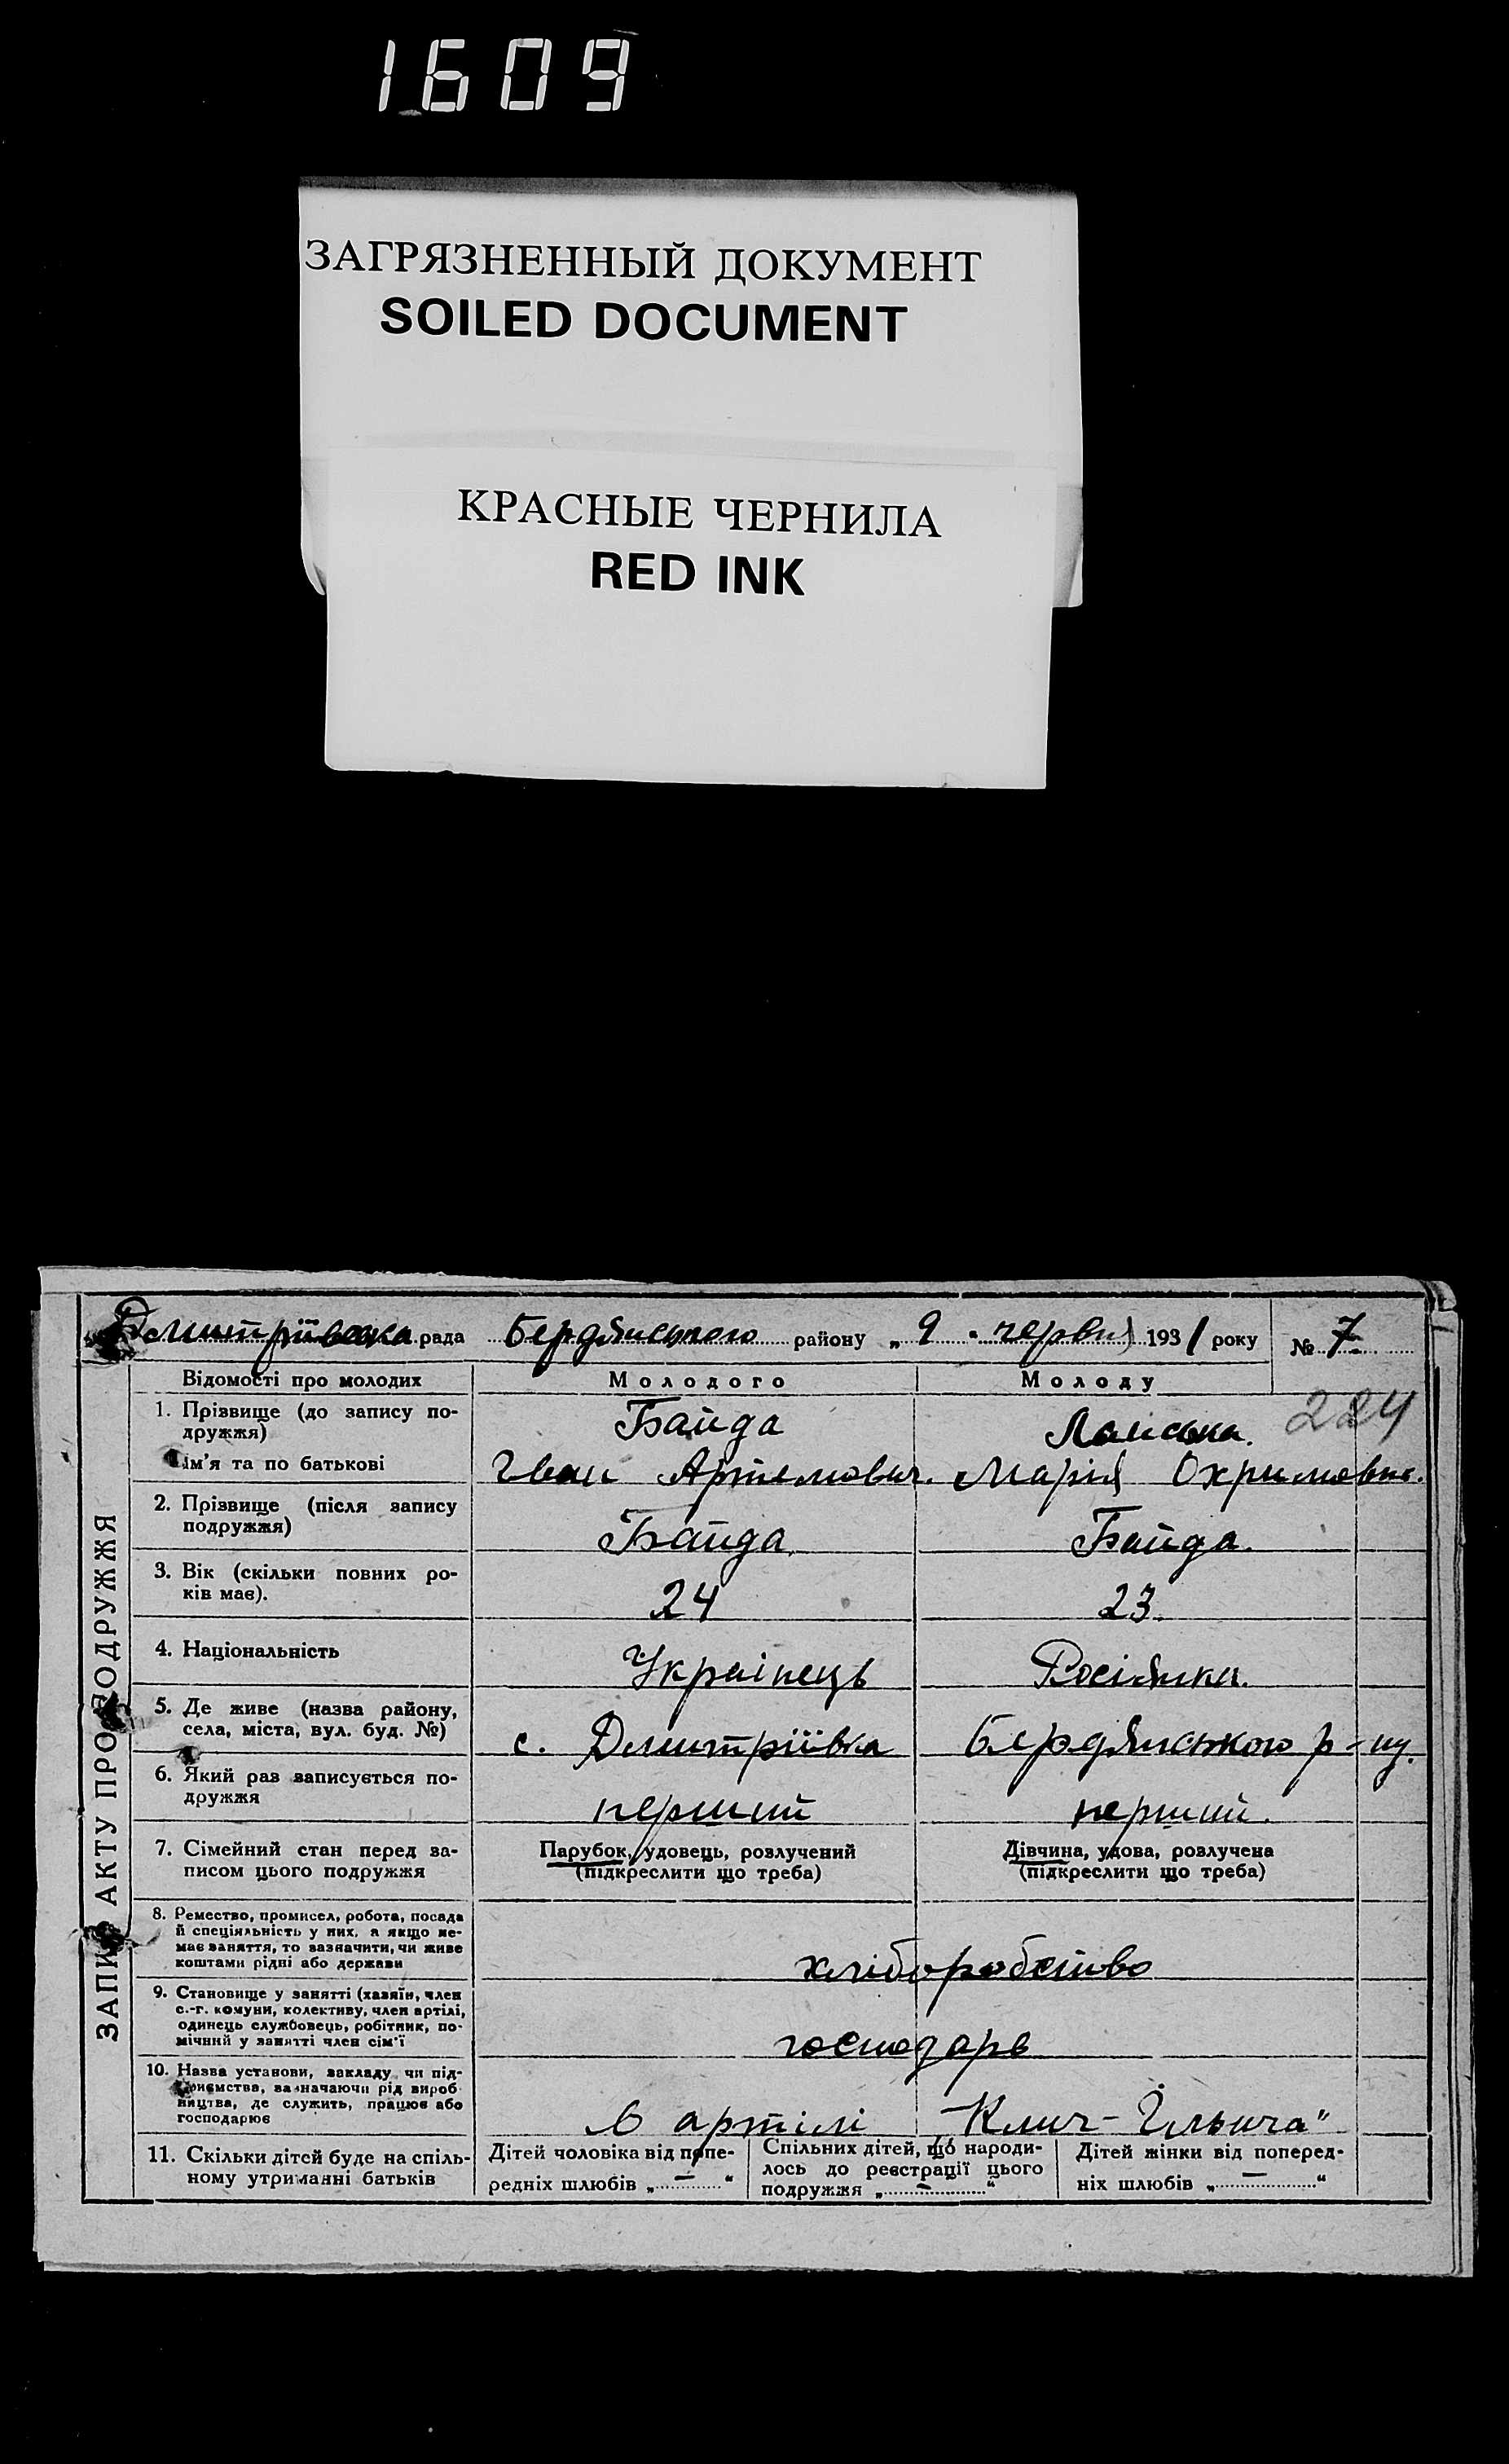 1609
ЗАГРЯЗНЕННЫЙ ДОКУМЕНТ
SOILED DOCUMENT
КРАСНЫЕ ЧЕРНИЛА
RED INK
Дмитріївська рада Бердянського району „ 9 " червня 1931 року № 7
Відомості про молодих Молодого Молоду
224
1. Прізвище (до запису по-
дружжя) Байда
ім'я та по батькові Іван Артемович. Марія Охримовна.
2. Прізвище (після запису
подружжя) Байда. Байда.
3. Вік (скільки повних ро-
ків має). 24 23.
4. Національність Украінець Росіянка.
5. Де живе (назва району,
села, міста, вул. буд. №) с. Дмитріївка Бердянського р-ну.
6. Який раз записується по-
дружжя перший перший.
7. Сімейний стан перед за-
писом цього подружжя
Парубок, удовець, розлучений
(підкреслити що треба)
Дівчина, удова, розлучена
(підкреслити що треба)
8. Ремество, промисел, робота, посада
й спеціяльність у них, а якщо не-
має заняття, то зазначити, чи живе
коштами рідні або держави
хліборобство
9. Становище у занятті (хазяїн, член
с.-г. комуни, колективу, член артілі,
одинець службовець, робітник, по-
мічний у занятті член сім'ї
господарь
10. Назва установи, закладу чи під-
приємства, зазначаючи рід вироб-
ництва, де служить, працює або
господарює
в артілі Клич-Ілльича"
11. Скільки дітей буде на спіль-
ному утриманні батьків
Дітей чоловіка від попе-
редніх шлюбів „ — "
Спільних дітей, що народи-
лось до реєстрації цього
подружжя „ — "
Дітей жінки від поперед-
ніх шлюбів „ — "
ЗАПИС АКТУ ПРО ПОДРУЖЖЯ